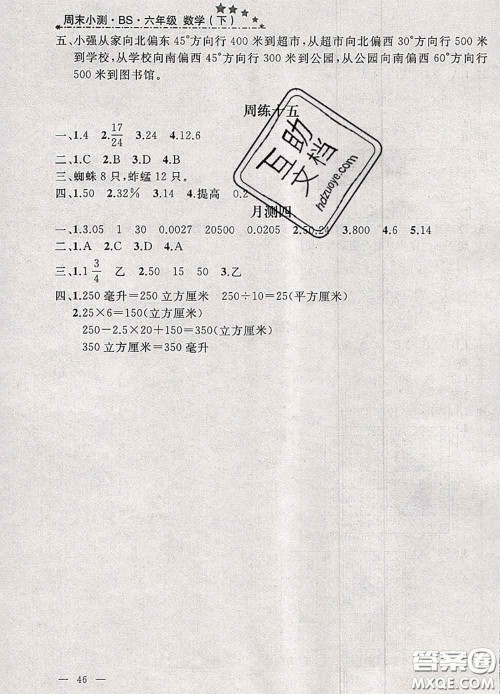 周末小测·BS·六年级 数学(下)
五、小强从家向北偏东 45°方向行 400 米到超市,从超市向北偏西 30°方向行 500 米
到学校,从学校向南偏西 45°方向行 300 米到公园,从公园向南偏西 60°方向行
500 米到图书馆。
周练十五
一、1.4 2.17/24 3.24 4.12.6
二、1.C 2.B 3.D 4.A
三、蜘蛛 8 只,蚱蜢 12 只。
四、1.50 2.32% 3.14 4.提高 0.2
月测四
一、1.3.05 1 30 0.0027 20500 0.0205 2.50.24 3.800 4.6 5.14
二、1.A 2.C 3.D 4.A
三、1.1 3/4 乙 2.50 15 50 3.乙
四、1.250 毫升=250 立方厘米 250÷10=25(平方厘米)
2.25×6=150(立方厘米)
250-2.5×20+150=350(立方厘米)
350 立方厘米=350 毫升
互助文档
hdzuoye.com
— 46 —
答案圈
MXQE.COM